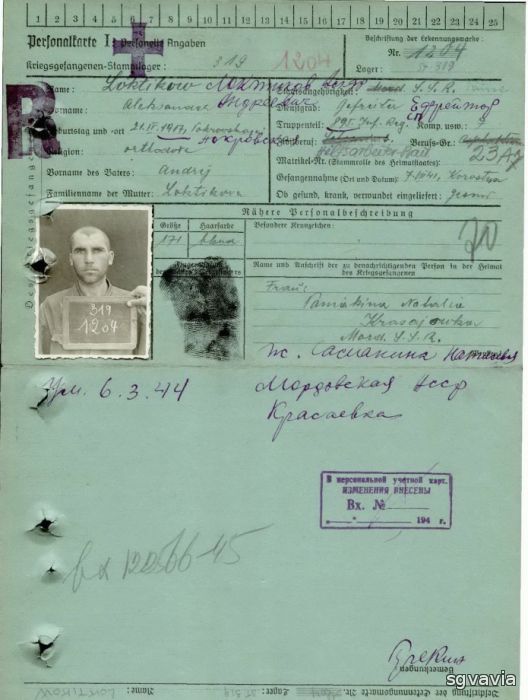 1 2 3 4 5 6 7 8 9 10 11 12 13 14 15 16 17 18 19 20 21 22 23 24 25
Personalkarte I: Personelle Angaben
Beschriftung der Erkennungsmarke:
Kriegsgefangenen-Stammlager: 319 1204
Nr. 1204
Lager: St. 319
Name: Loktikow Локтиков
Staatsangehörigkeit: Mord. S.S.R.
Vorname: Aleksander Андреевич
Dienstgrad: Gefreiter Ефрейтор
Truppenteil: Inf. Reg. Komp. usw.:
Geburtstag und -ort 21. IV. 1917, Pokrowskoje Покровское
Zivilberuf: Berufs-Gr.:
Religion: orthodox
Matrikel-Nr. (Stammrolle des Heimatstaates)
Vorname des Vaters: Andrej
Gefangennahme (Ort und Datum): Korostyn
Familienname der Mutter: Loktikova
Ob gesund, krank, verwundet eingeliefert:
R
Des Kriegsgefangenen
Nähere Personalbeschreibung
Größe
Haarfarbe
Besondere Kennzeichen:
171
blond
20
319
1204
Name und Anschrift der zu benachrichtigenden Person in der Heimat des Kriegsgefangenen
Frau:
Natalia
Krasajowka
Mord. S.S.R.
ж. Сасманина Наталия
Ум. 6.3.44
Мордовская АССР
Красаевка
В персональной учетной карт.
ИЗМЕНЕНИЯ ВНЕСЕНЫ
Вх. №
194 г.
вх 12266-45
Bemerkungen
Beschriftung der Erkennungsmarke Nr.
Lager:
Name: LOKTIKOW
sgvavia